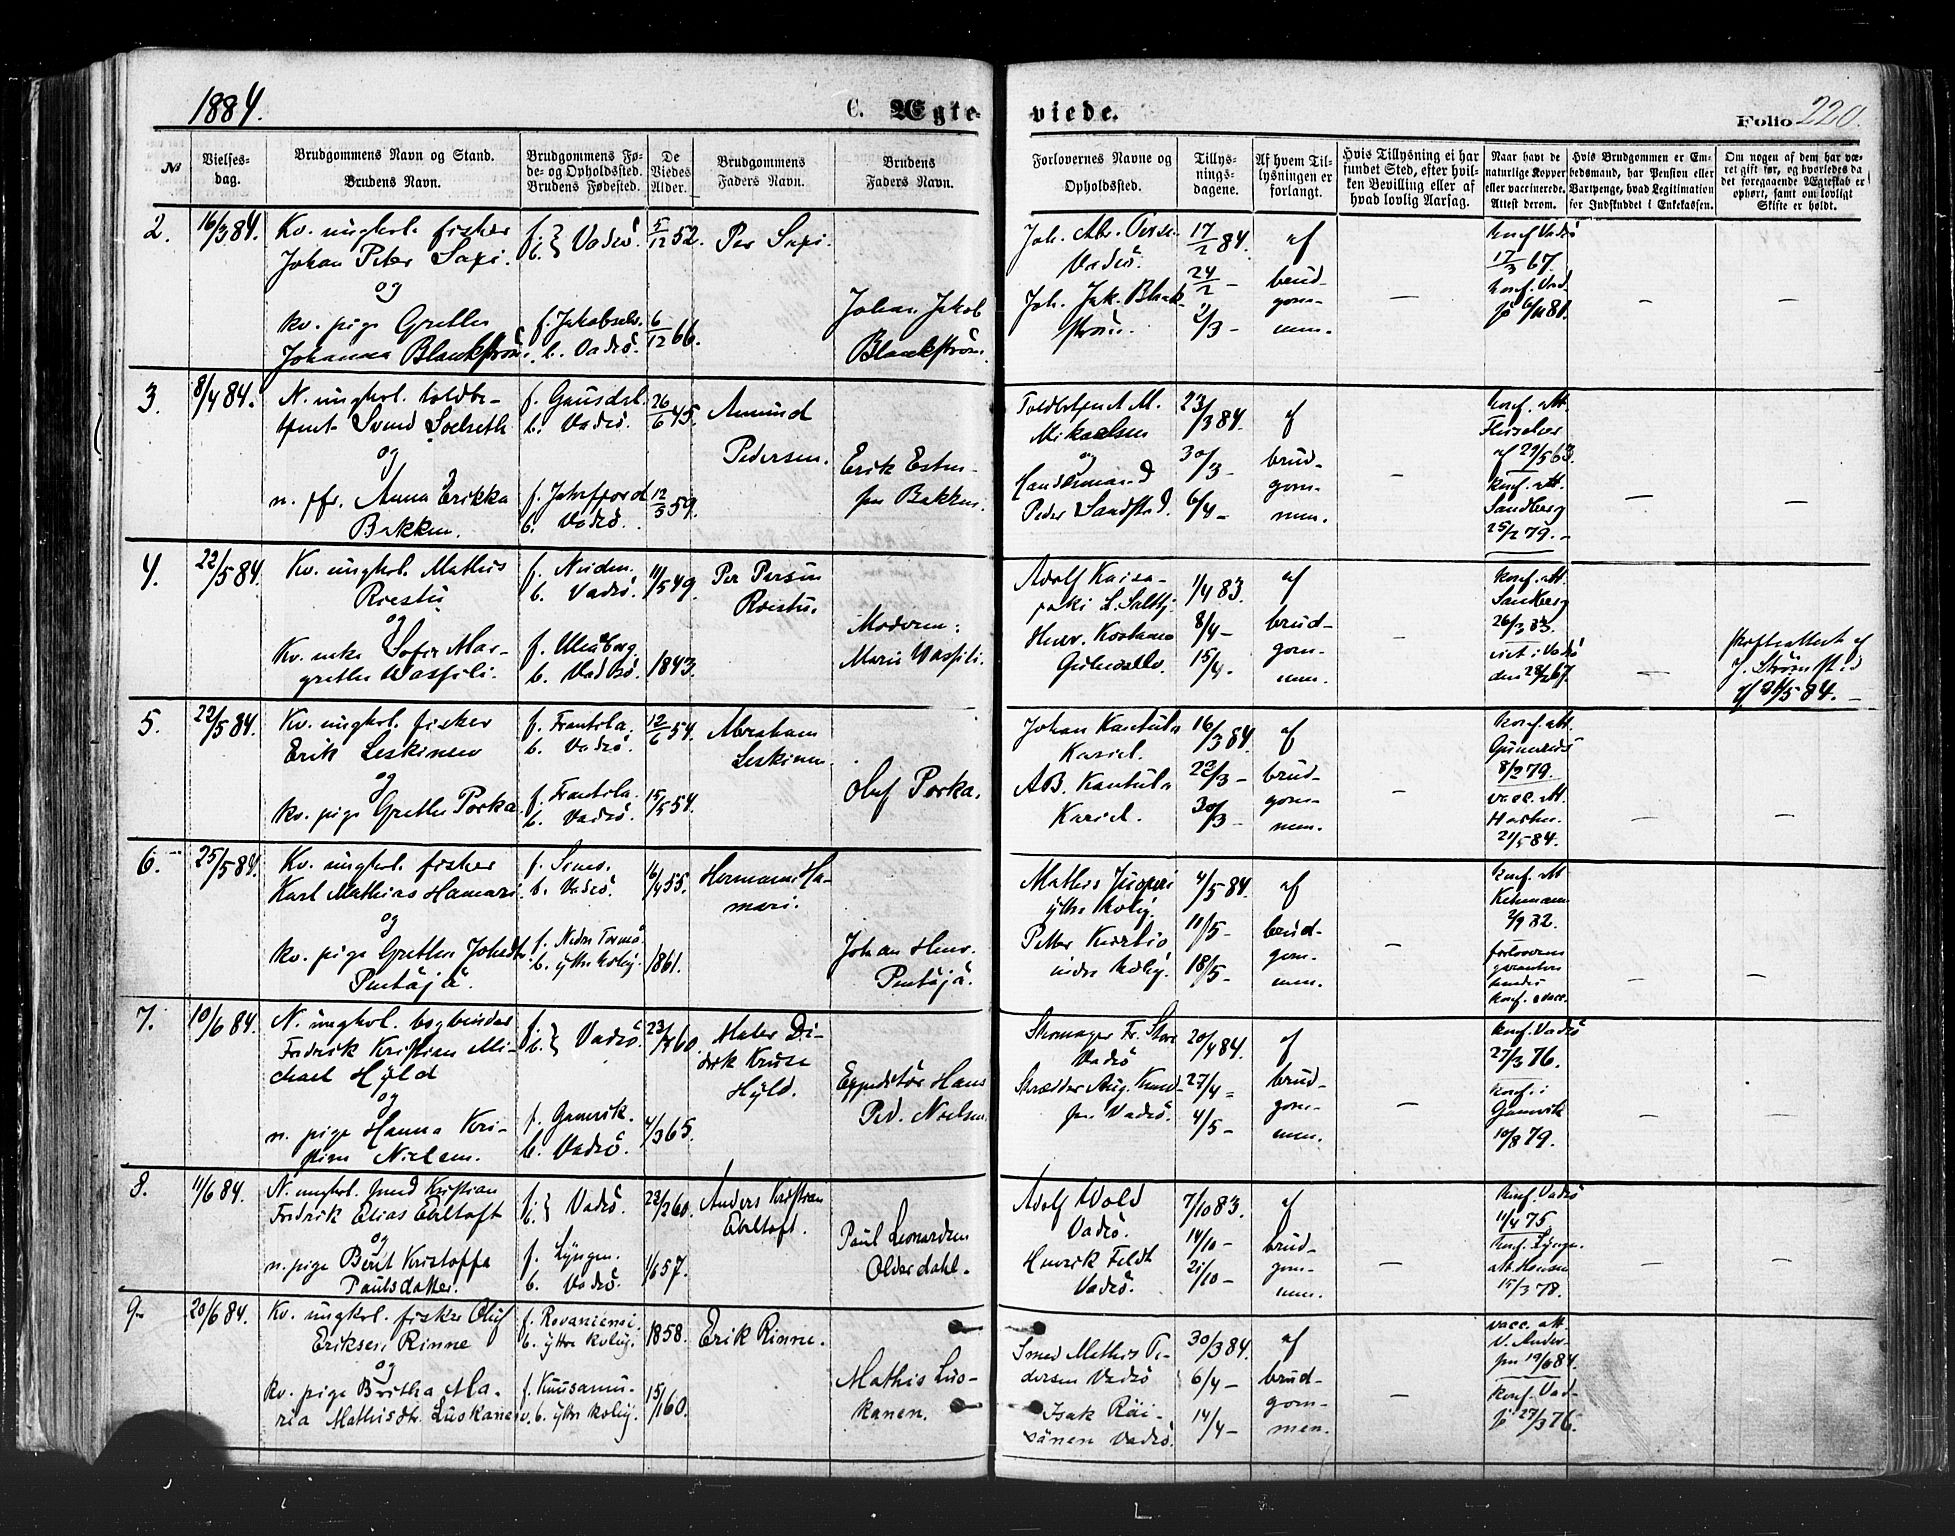 1884.
C. Ægte-
viede.
Folio 220.
No
Vielses-
dag.
Brudgommens Navn og Stand.
Brudens Navn.
Brudgommens Fø-
de- og Opholdssted.
Brudens Fødested.
De
Viedes
Alder.
Brudgommens
Faders Navn.
Brudens
Faders Navn.
Forlovernes Navne og
Opholdssted.
Tillys-
nings-
dagene.
Af hvem Til-
lysningen er
forlangt.
Hvis Tillysning ei har
fundet Sted, efter hvil-
ken Bevilling eller af
hvad lovlig Aarsag.
Naar havt de
naturlige Kopper
eller vaccinerede.
Attest derom.
Hvis Brudgommen er Em-
bedsmand, har Pension eller
Vartpenge, hvad Legitimation
for Indskuddet i Enkekassen.
Om nogen af dem har væ-
ret gift før, og hvorledes da
det foregaaende Ægteskab er
ophørt, samt om lovligt
Skifte er holdt.
2.
16/3 84.
Kv. ungkol. fisker
Johan Peter Saxi.
og
kv. pige Grethe
Johanna Blankstrøm.
f. } Vadsö.
b.
f. Jakobselv.
b. Vadsö.
5/12 52.
6/12 66.
Per Saxi.
Johan Jakob
Blankstrøm.
Vadsö.
Joh. Jak. Blank-
strøm.
17/2 84.
24/2 -
2/3 -
af
brud-
gom-
men.
konf. Vadsö
17/3 67.
konf. Vad-
3.
8/4 84.
N. ungkol. toldbe-
tjent Svend Solseth
og
n. jfr. Anna Erikka
Bakken.
f. Gausdal.
b. Vadsö.
b. Vadsö.
26/6 45.
12/5 59.
Amund
Pedersen.
Erik Esten-
sen Bakken.
Toldbetjent M.
Mikaelsen
og
Handelsmand
Peder Sandstad.
23/3 84.
30/3 -
6/4 -
af
brud-
gom-
men.
konf. att.
Fleischer
af 29/5 63.
konf. att.
Sandberg
25/2 79. -
4.
22/5 84.
Kv. ungkol. Mathis
Roestu
og
Kv. enke Sofie Mar-
grethe Wasfili.
f. Neiden.
b. Vadsö.
f. Uleåborg.
b. Vadsö.
11/5 49.
1843.
Per Persen
Roestu.
Moderen:
Marie Vasfili.
1/4 83.
8/4 -
15/4 -
af
brud-
gom-
men.
konf. att.
Sandberg
viet i Vadsö
Skifteattest af
J. Strømsted
af 21/5 84. -
5.
22/5 84.
Kv. ungkol. fisker
Erik Leskinen
og
kv. pige Grethe Porka
f. Frantsila.
b. Vadsö.
f. Frantsila.
b. Vadsö.
12/6 54.
15/5 54.
Abraham
Leskinen.
Oluf Porka.
Johan Kantula
Kariel.
A.B. Kantula
Kariel.
16/3 84.
23/3 -
30/3 -
af
brud-
gom-
men.
konf. att.
8/2 79.
vacc. att.
21/5 84.
6.
25/5 84.
Kv. ungkol. fisker
Karl Mathias Hamari
og
kv. pige Grethe Johsdtr
Pentäjä.
f. Simo.
b. Vadsö.
f. Nedre Torneå.
b. yttre kolig.
16/4 55.
1861.
Hermann Ha-
mari.
Johan Henr.
Pentäjä.
Mathis Juopperi
yttre kolig.
indre kolig.
4/5 84.
11/5 -
18/5 -
af
brud-
gom-
men.
konf. att
2/9 32.
forloverne
garanterer
konf. & vacc.
7.
10/6 84.
N. ungkol. bogbinder
Fredrik Kristian Mi-
chael Hyld
og
n. pige Hanna Kri-
stine Nielsen.
f. } Vadsö.
b.
f. Gamvik.
b. Vadsö.
4/3 65.
Maler Di-
drik Kruse
Hyld.
Expeditør Hans
Ped. Nielsen.
Skomager Fr. Store
Vadsö
Skrædder Aug. Knud-
sen Vadsö.
20/4 84.
27/4 -
4/5 -
af
brud-
gom-
men.
konf. Vadsö
27/3 76.
konf. i
Gamvik
10/8 79.
8.
11/6 84.
N. ungkol. smed Kristian
Fredrik Elias Ebeltoft
og
n. pige Berit Kristoffa
Paulsdatter.
f. } Vadsö.
b.
f. Lyngen.
b. Vadsö.
22/2 60.
1/6 57.
Anders Kristian
Ebeltoft.
Paul Leonardsen
Olderdahl.
Adolf Wold
Vadsö.
Henrik Feldt
Vadsö.
7/10 83.
14/10 -
21/10 -
af
brud-
gom-
men.
konf. Vadsö
11/4 75.
konf. Lyngen.
att. Hansen
15/3 78.
9.
20/6 84.
Kv. ungkol. fisker Oluf
Eriksen Rinne
og
kv. pige Britha Ma-
ria Mathisdtr. Luskanen.
f. Rovaniemi.
b. yttre kolig.
f. Kuusamo.
b. yttre kolig.
1858.
15/1 60.
Erik Rinne.
Mathis Lus-
kanen.
Smed Mathis Pe-
dersen Vadsö
Isak Räi-
sänen Vadsö.
30/3 84.
6/4 -
14/4 -
af
brud-
gom-
men.
vacc. att.
V. Ander-
sen 19/6 84.
konf. Vad-
sö 27/3 76.